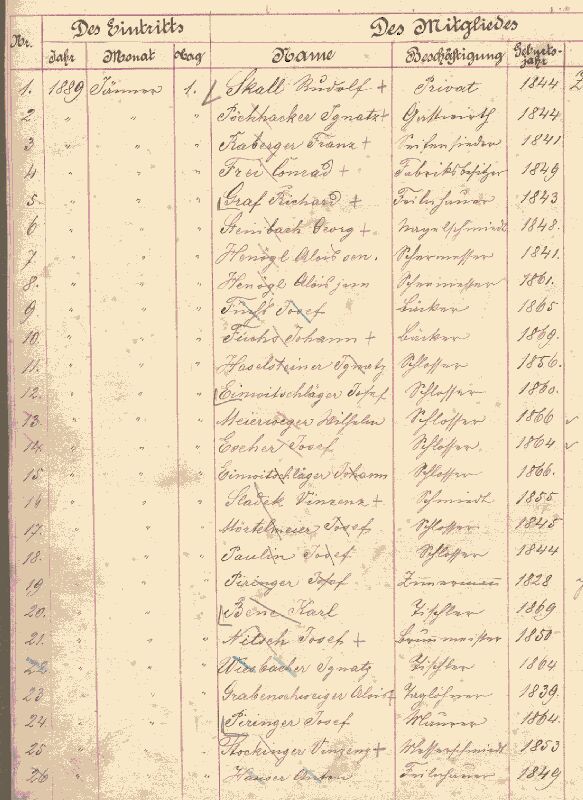 Des Eintritts Des Mitgliedes
Nr. Jahr Monat Tag Name Beschäftigung Geburts-
jahr
1. 1889 Jänner 1. Skall Rudolf + Privat 1844
2 " " " Pöchhacker Ignatz + Gastwirth 1844
3 " " " Raberger Franz + Seifensieder 1841
4 " " " Frei Conrad + Fabriksbesitzer 1849
5. " " " Graf Richard + Feilenhauer 1843
6 " " " Steinbach Georg + Nagelschmiedt 1848.
7 " " " Alois sen. 1841.
8. " " " Alois jun 1861.
9 " " " Fuchs Josef Bäcker 1865
10. " " " Fuchs Johann + Bäcker 1869.
11. " " " Haselsteiner Ignatz Schlosser 1856.
12. " " " Einwitschläger Josef Schlosser 1860.
13. " " " Meierweger Wilhelm Schlosser 1866
14. " " " Escher Josef Schlosser. 1864
15 " " " Einwitschläger Johann Schlosser 1866.
16 " " " Sladek Vinzenz + Schmiedt 1855
17. " " " Mörtelmeier Josef Schlosser 1845
18. " " " Paulin Josef Schlosser 1844
19 " " " Piringer Josef Zimermann 1828
20. " " " Bene Karl Tischler 1869
21. " " " Nitsch Josef + Brunnmeister 1850
22 " " " Ignatz Tischler 1864
23 " " " Grabenschweiger Alois + Taglöhner 1839.
24 " " " Piringer Josef Maurer 1864.
25 " " " Stockinger Vinzenz + Messerschmiedt 1853
26 " " " Hauser Anton Feilenhauer 1849